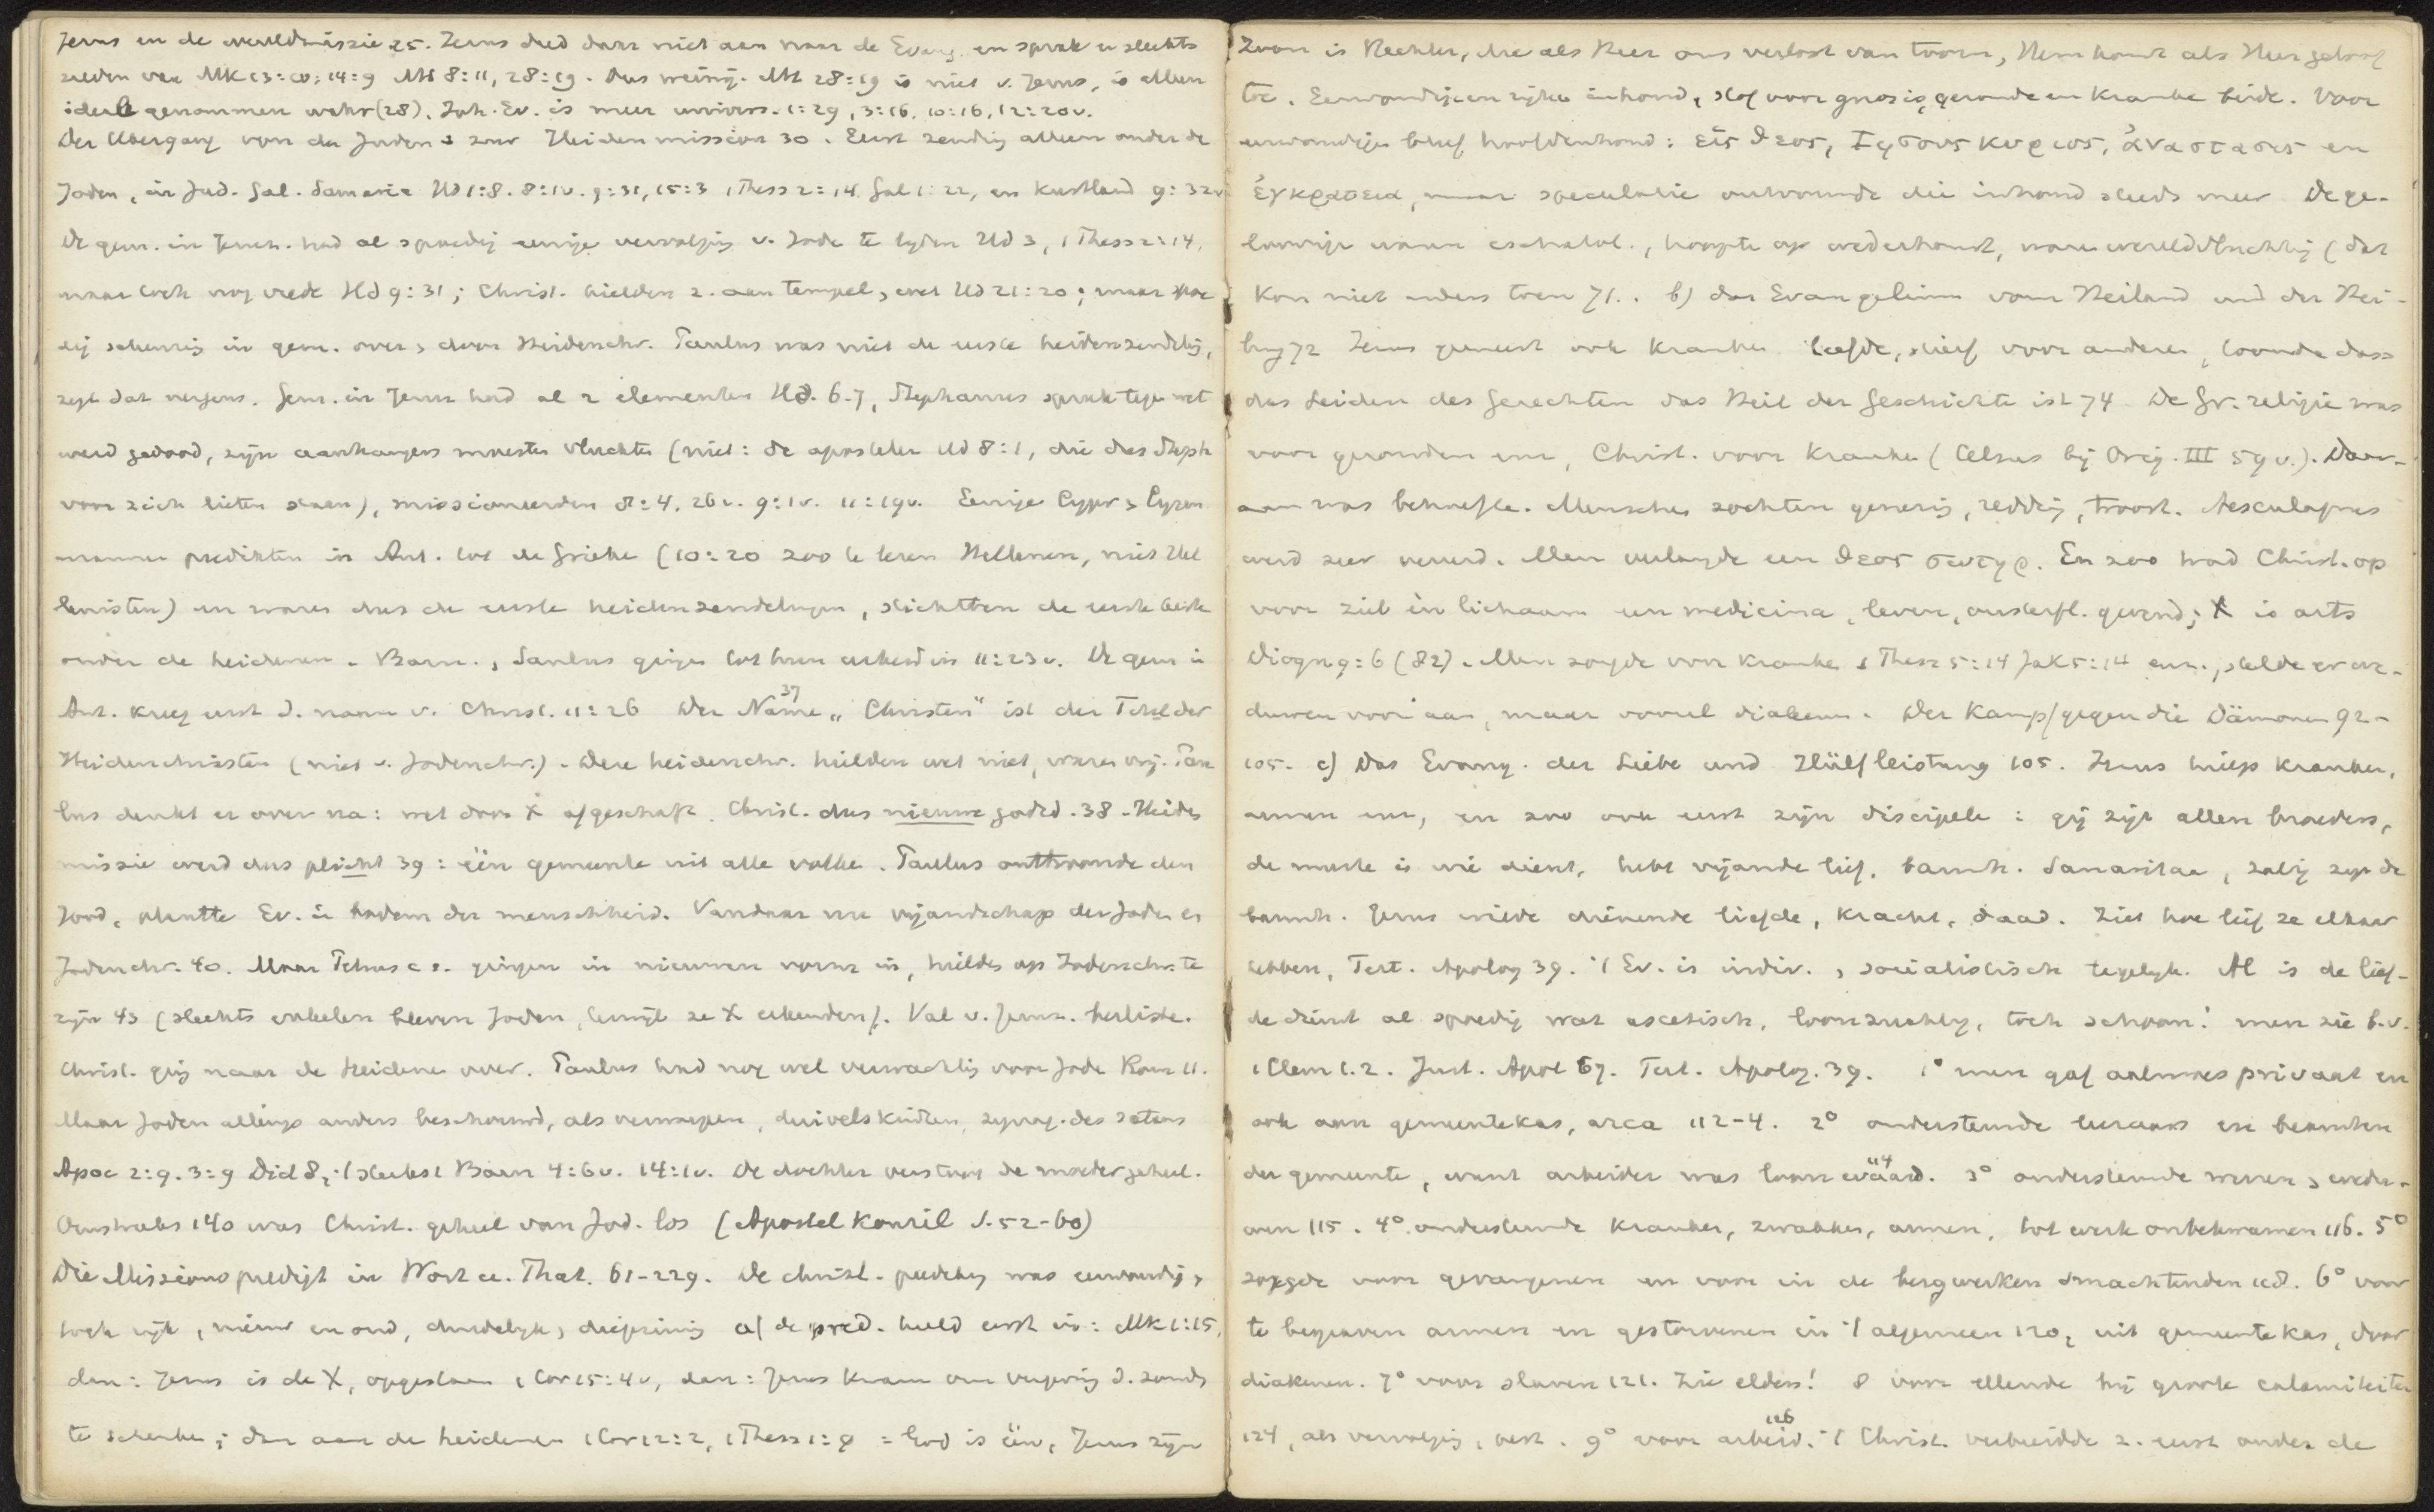 Jezus en de wereldmissie 25. Jezus deed daar niet aan naar de Evang. en sprak er slechts
zelden van Mk 13:10; 14:9 Mt 8:11, 28:19. Dus weinig. Mt 28:19 is niet v. Jezus, is allen
ideell genommen wahr (28). Joh. Ev. is meer univers. 1:29, 3:16, 10:16, 12:20v.
Der Übergang von der Juden- zur Heidenmission 30. Eerst zending alleen onder de
Joden, in Jud. Gal. Samaria Hd 1:8. 8:1v. 9:31, 15:3 1 Thess 2:14 Gal 1:22, en kustland 9:32v
De gem. in Jeruz. had al spoedig eenige vervolging v. Jode te lyden Hd 3, 1 Thess 2:14,
maar toch nog vrede Hd 9:31; Christ. hielden z. aan tempel, wet Hd 21:20; maar spoe
dig scheuring in gem. over, door Heidenchr. Paulus was niet de eerste heidenzendeling,
zegt dat nergens. Gem. in Jeruz had al 2 elementen Hd. 6-7, Stephanus sprak tege wet
werd gedood, zijn aanhangers moesten vluchte (niet: de apostelen Hd 8:1, die dus Steph
voor zich lieten staan), missioneerden 8:4. 26v. 9:1v. 11:19v. Eenige Cypr & Cyren
mannen predikten in Ant. tot de Grieke (10:20 zoo te lezen Hellenen, niet Hel
lenisten) en waren dus de eerste heidenzendelingen, stichtten de eerste kerk
onder de heidenen. Barn., Saulus gingen tot hun arbeid in 11:23v. De gem in
Ant. kreeg eerst d. naam v. Christ. 11:26 Der Name 37 „Christen" ist der Titel der
Heidenchristen (niet v. Jodenchr.). Deze heidenchr. hielden wet niet, waren vrij. Pau
lus denkt er over na: wet door X afgeschaft. Christ. dus nieuwe godsd. 38. Heide
missie werd dus plicht 39: één gemeente uit alle volke. Paulus ontwrong den
Jood, plantte Ev. in bodem der menschheid. Vandaar nu vijandschap der Joden en
Jodenchr. 40. Maar Petrus c.s. gingen in nieuwen vorm in, hielde op Jodenchr. te
zijn 43 (slechts enkelen bleven Joden, terwijl ze X erkenden). Val v. Jeruz. besliste.
Christ. ging naar de Heidene over. Paulus had nog wel verwachting voor Jode Rom 11.
Maar Joden allengs anders beschouwd, als verworpen, duivelskinderen, synag. des satans
Apoc 2:9. 3:9 Did 8, 't sterkst Barn 4:6v. 14:1v. De dochter verstoot de moeder geheel.
Omstreeks 140 was Christ. geheel van Jod. los (Apostel Konzil S. 52-60)
Die Missionspredigt in Wort u. That. 61-229. De christ. prediking was eenvoudig,
toch rijk, nieuw en oud, duidelyk, diepzinnig a) de pred. hield eerst in: Mk 1:15,
dan: Jezus is de X, opgestaan 1 Cor 15:4v, dan: Jezus kwam om vergeving d. zonde
te schenken; dan aan de heidenen 1 Cor 12:2, 1 Thess 1:9 = God is één, Jezus zijn
Zoon is Rechter, die als Heer ons verlost van toorn, Hem komt als Heer geloof
toe. Eenvoudige en rijke inhoud, stof voor gnosis, gezonde en kranke beide. Voor
eenvoudigen bleef hoofdinhoud: εἷς θεος, Ἰησους κυριος, ἀναστασις en
ἐγκρατεια, maar speculatie ontwonde die inhoud steeds meer De ge-
loovige waren eschatol., hoopte op wederkomst, waren wereldvluchtig (dat
kon niet anders toen 71.. b) das Evangelium vom Heiland und der Hei-
lung 72 Jezus geneest ook kranken liefde, stierf voor anderen, toonde dass
das Leiden des Gerechten das Heil der Geschichte ist 74 De Gr. religie was
voor gezonden enz, Christ. voor kranken (Celsus bij Orig. III 59v.). Daar-
aan was behoefte. Menschen zochten genezing, redding, troost. Aesculapius
werd zeer vereerd. Men verlangde een θεος σωτηρ. En zoo trad Christ. op
voor ziel èn lichaam een medicina, leven, onsterfl. gevend; X is arts
Diogn 9:6 (82). Men zorgde voor kranken 1 Thess 5:14 Jak 5:14 enz., stelde er we-
duwen voor aan, maar vooral diakens. Der Kampf gegen die Dämonen 92-
105. c) Das Evang. der Liebe und Hülfleistung 105. Jezus hielp kranken,
armen enz, en zoo ook eerst zijn discipele: gij zijt allen broeders,
de meeste is wie dient, hebt vijande lief, barmh. Samaritaa, zalig zijn de
barmh. Jezus wilde dienende liefde, kracht, daad. Ziet hoe lief ze elkaar
hebben, Tert. Apolog 39. 't Ev. is indiv. & socialistisch tegelyk. Al is de lief-
de dient al spoedig wat ascetisch, loonzuchtig, toch schoon! men zie b.v.
1 Clem 1.2. Just. Apol 67. Tert. Apolog. 39. 1° men gaf aalmoes privaat en
ook aan gemeentekas, arca 112-4. 2° ondersteunde leeraars en beambten
der gemeente, want arbeider was loon waard. 114 3° ondersteunde weezen & wedu-
wen 115. 4° ondersteunde kranken, zwakken, armen, tot werk onbekwamen 116. 5°
zorgde voor gevangenen en voor in de bergwerken smachtenden 118. 6° voor
te begraven armen en gestorvenen in 't algemeen 120, uit gemeentekas, door
diakenen. 7° voor slaven 121. Zie elders! 8 voor ellende bij groote calamiteiten
124, als vervolging, pest. 9° voor arbeid. 126 't Christ. verbreidde z. eerst onder de